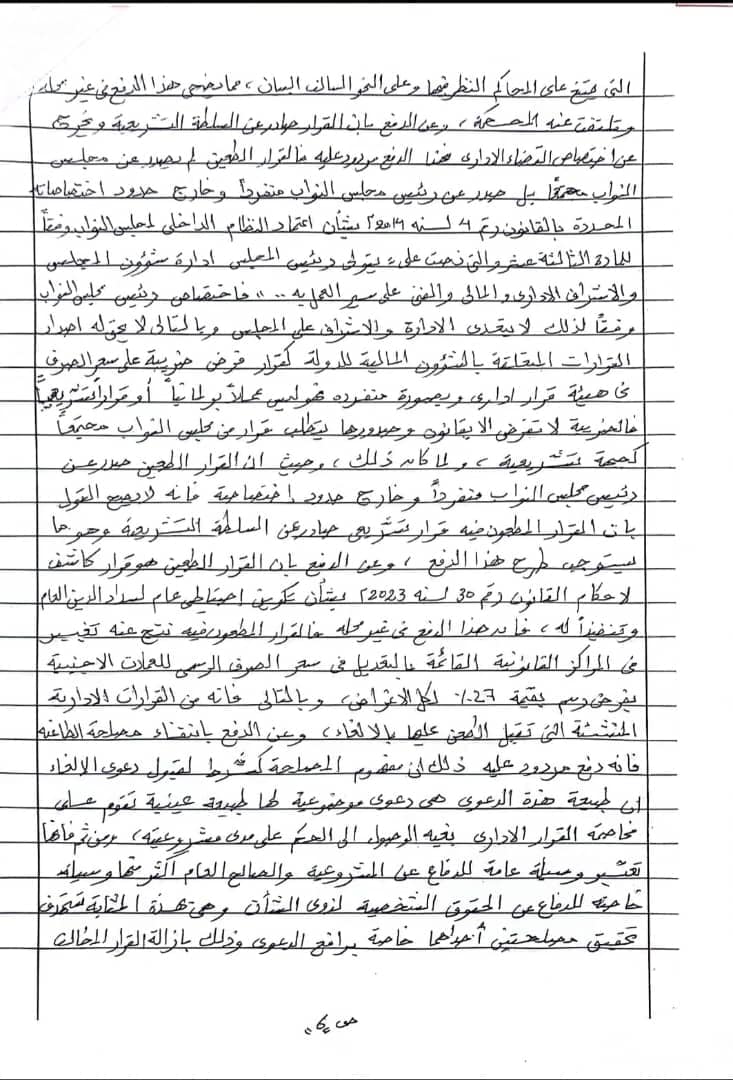 التى يمتنع على المحاكم النظر فيها وعلى النحو السالف البيان ، مما يضحى هذا الدفع فى غير محله
وتلتفت عنه المحكمة ، وعن الدفع بان القرار صادر عن السلطة التشريعية ويخرج
عن اختصاص القضاء الادارى فهذا الدفع مردود عليه فالقرار الطعين لم يصدر عن مجلس
النواب مجتمعاً بل صدر عن رئيس مجلس النواب منفرداً وخارج حدود اختصاصاته
المحددة بالقانون رقم 4 لسنه 2014 بشأن اعتماد النظام الداخلى لمجلس النواب وفقاً
للمادة الثالثة عشر والتى نصت على " يتولى رئيس المجلس ادارة شؤون المجلس
والاشراف الادارى والمالى والفنى على سير العمل به .. " فاختصاص رئيس مجلس النواب
وفقاً لذلك لا يتعدى الادارة والاشراف على المجلس وبالتالى لا يحق له اصدار
القرارات المتعلقة بالشؤون المالية للدولة كقرار فرض ضريبة على سعر الصرف
فى هيئة قرار ادارى وبصورة منفرده فهو ليس عملاً برلمانياً أو قراراً تشريعياً
فالضريبة لا تفرض الا بقانون وصدورها يتطلب قرار من مجلس النواب مجتمعاً
كجهة تشريعية ، ولما كان ذلك ، وحيث ان القرار الطعين صدر عن
رئيس مجلس النواب منفرداً وخارج حدود اختصاصية فانه لا يصح القول
بان القرار المطعون فيه قرار تشريعى صادر عن السلطة التشريعية وهو ما
يستوجب طرح هذا الدفع ، وعن الدفع بان القرار الطعين هو قرار كاشف
لاحكام القانون رقم 30 لسنه 2023 بشأن تكوين احتياطى عام لسداد الدين العام
وتنفيذاً له ، فان هذا الدفع فى غير محله فالقرار المطعون فيه نتج عنه تغيير
فى المراكز القانونية القائمة بالتعديل فى سعر الصرف الرسمى للعملات الاجنبية
بفرض رسم بقيمة 27% لكل الاغراض ، وبالتالى فانه من القرارات الادارية
المنشئة التى تقبل الطعن عليها بالالغاء ، وعن الدفع بانتفاء مصلحة الطاعنه
فانه دفع مردود عليه ذلك ان مفهوم المصلحة كشرط لقبول دعوى الإلغاء
ان طبيعة هذه الدعوى هى دعوى موضوعية لها طبيعة عينية تقوم على
مخاصمة القرار الادارى بغيه الوصول الى الحكم على مدى مشروعيته ، ومن ثم فانها
تعتبر وسيلة عامة للدفاع عن المشروعية والصالح العام أكثر منها وسيله
خاصة للدفاع عن الحقوق الشخصية لذوى الشأن وهى بهذه المثابة تستهدف
تحقيق مصلحتين أحداهما خاصة برافع الدعوى وذلك بازالة القرار المخالف
ص "6"